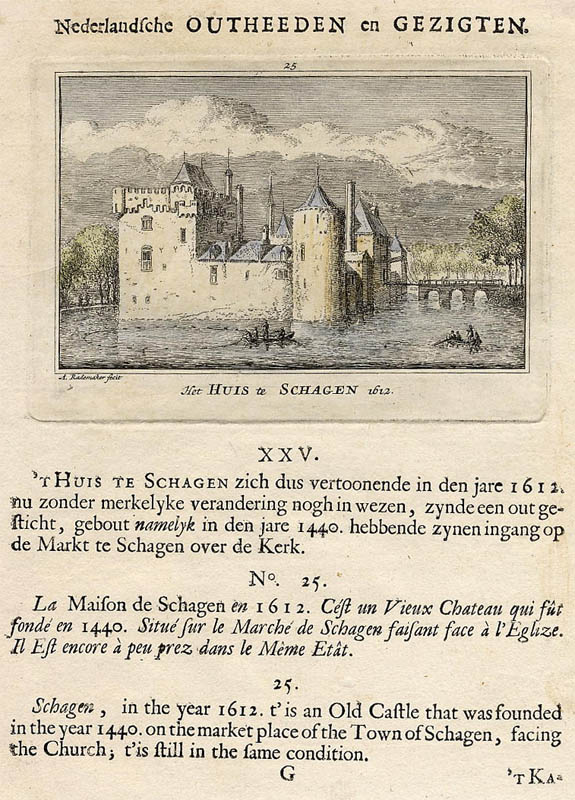 Nederlandſche OUTHEEDEN en GEZIGTEN.
25
A. Rademaker fecit
Het HUIS te SCHAGEN 1612.
XXV.
'T HUIS TE SCHAGEN zich dus vertoonende in den jare 1612.
nu zonder merkelyke verandering nogh in wezen, zynde een out ge-
ſticht, gebout namelyk in den jare 1440. hebbende zynen ingang op
de Markt te Schagen over de Kerk.
N°. 25.
La Maiſon de Schagen en 1612. Céſt un Vieux Chateau qui fût
fondé en 1440. Situé ſur le Marché de Schagen faiſant face à l'Eglize.
Il Eſt encore à peu prez dans le Mème Etât.
25.
Schagen, in the year 1612. t'is an Old Caſtle that was founded
in the year 1440. on the market place of the Town of Schagen, facing
the Church; t'is ſtill in the ſame condition.
G 'T KA-